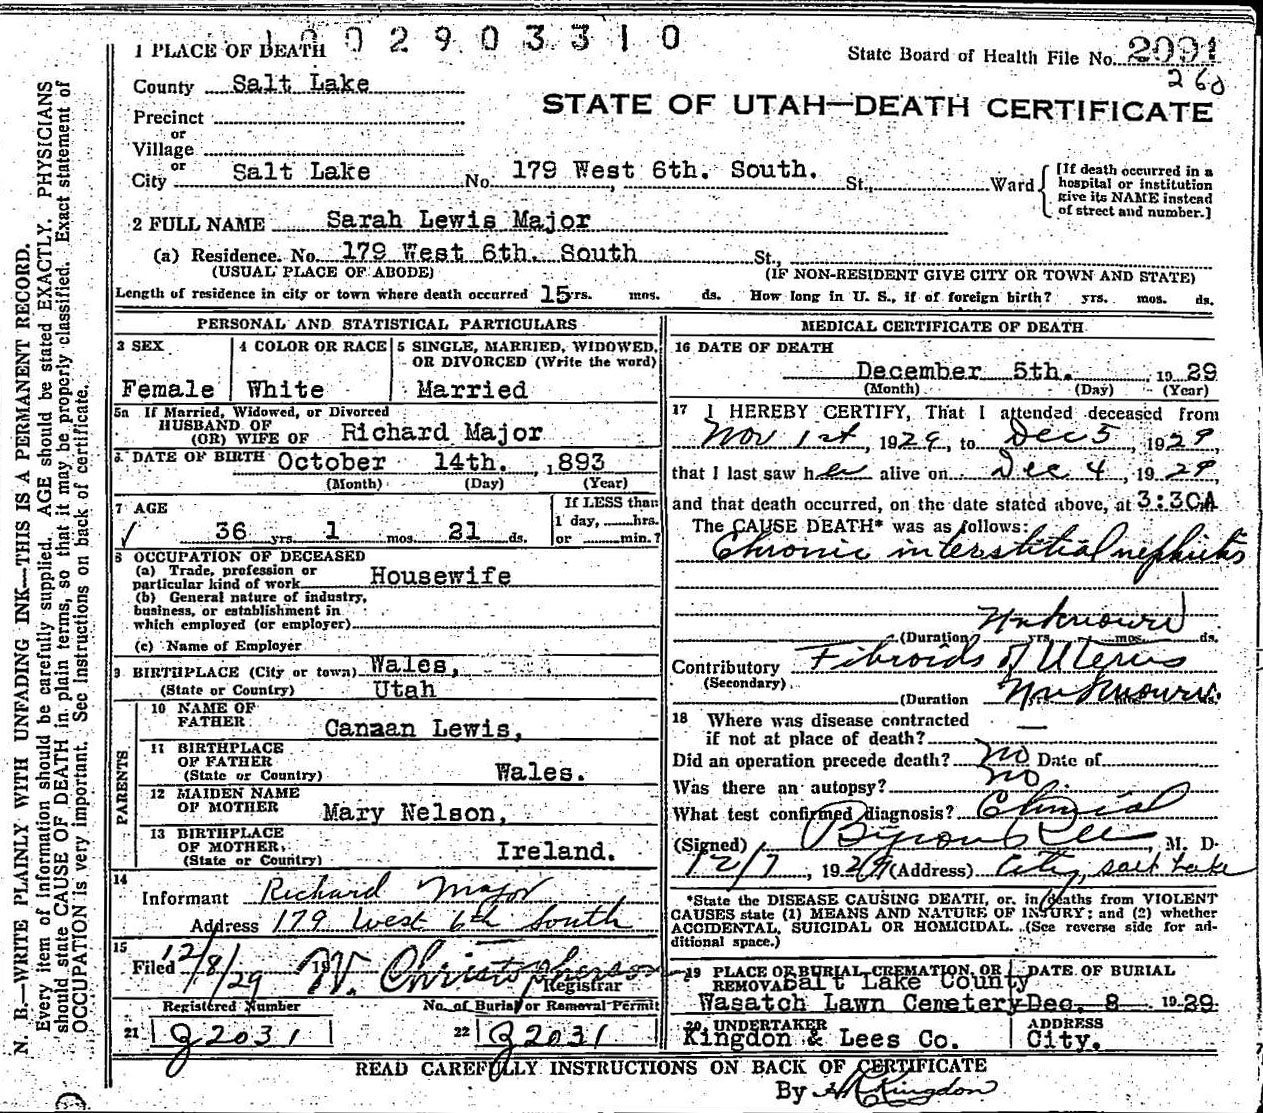 1 0 0 2 9 0 3 3 1 0
1 PLACE OF DEATH
State Board of Health File No. 2091
260
County Salt Lake
STATE OF UTAH—DEATH CERTIFICATE
Precinct
or
Village
or
City Salt Lake No. 179 West 6th. South. St., Ward
[If death occurred in a hospital or institution give its NAME instead of street and number.]
2 FULL NAME Sarah Lewis Major
(a) Residence. No. 179 West 6th. South St.,
(USUAL PLACE OF ABODE) (IF NON-RESIDENT GIVE CITY OR TOWN AND STATE)
Length of residence in city or town where death occurred 15 yrs. mos. ds. How long in U. S., if of foreign birth? yrs. mos. ds.
PERSONAL AND STATISTICAL PARTICULARS
3 SEX
Female
4 COLOR OR RACE
White
5 SINGLE, MARRIED, WIDOWED, OR DIVORCED (Write the word)
Married
5a If Married, Widowed, or Divorced
HUSBAND OF
(OR) WIFE OF Richard Major
6 DATE OF BIRTH October 14th. , 1893
(Month) (Day) (Year)
7 AGE
36 yrs. 1 mos. 21 ds.
If LESS than
1 day, hrs.
or min.?
8 OCCUPATION OF DECEASED
(a) Trade, profession or
particular kind of work Housewife
(b) General nature of industry,
business, or establishment in
which employed (or employer)
(c) Name of Employer
9 BIRTHPLACE (City or town) Wales,
(State or Country) Utah
PARENTS
10 NAME OF
FATHER Canaan Lewis,
11 BIRTHPLACE
OF FATHER
(State or Country) Wales.
12 MAIDEN NAME
OF MOTHER Mary Nelson,
13 BIRTHPLACE
OF MOTHER,
(State or Country) Ireland.
14
Informant Richard Major
Address 179 West 6th South
15
Filed 12/8/29 19 W. Christopherson
Registrar
Registered Number No. of Burial or Removal Permit
21 J2031 22 J2031
MEDICAL CERTIFICATE OF DEATH
16 DATE OF DEATH
December 5th. , 19 29
(Month) (Day) (Year)
17 I HEREBY CERTIFY, That I attended deceased from
Nov 1st, 1929, to Dec 5, 1929,
that I last saw her alive on Dec 4, 1929,
and that death occurred, on the date stated above, at 3:30A
The CAUSE DEATH* was as follows:
Chronic interstitial nephritis
Unknown
(Duration yrs. mos. ds.
Contributory Fibroids of Uterus
(Secondary)
(Duration Unknown.
18 Where was disease contracted
if not at place of death? —
Did an operation precede death? no Date of
Was there an autopsy? no
What test confirmed diagnosis? Clinical
(Signed) Byron Rees, M. D.
12/7, 1929 (Address) City, Salt Lake
*State the DISEASE CAUSING DEATH, or, in deaths from VIOLENT
CAUSES state (1) MEANS AND NATURE OF INJURY; and (2) whether
ACCIDENTAL, SUICIDAL OR HOMICIDAL. (See reverse side for ad-
ditional space.)
19 PLACE OF BURIAL, CREMATION, OR
REMOVAL Salt Lake County
Wasatch Lawn Cemetery
DATE OF BURIAL
Dec. 8 1929
20 UNDERTAKER
Kingdon & Lees Co.
ADDRESS
City.
READ CAREFULLY INSTRUCTIONS ON BACK OF CERTIFICATE
By Kingdon
N. B.—WRITE PLAINLY WITH UNFADING INK—THIS IS A PERMANENT RECORD.
Every item of information should be carefully supplied. AGE should be stated EXACTLY. PHYSICIANS
should state CAUSE OF DEATH in plain terms, so that it may be properly classified. Exact statement of
OCCUPATION is very important. See instructions on back of certificate.